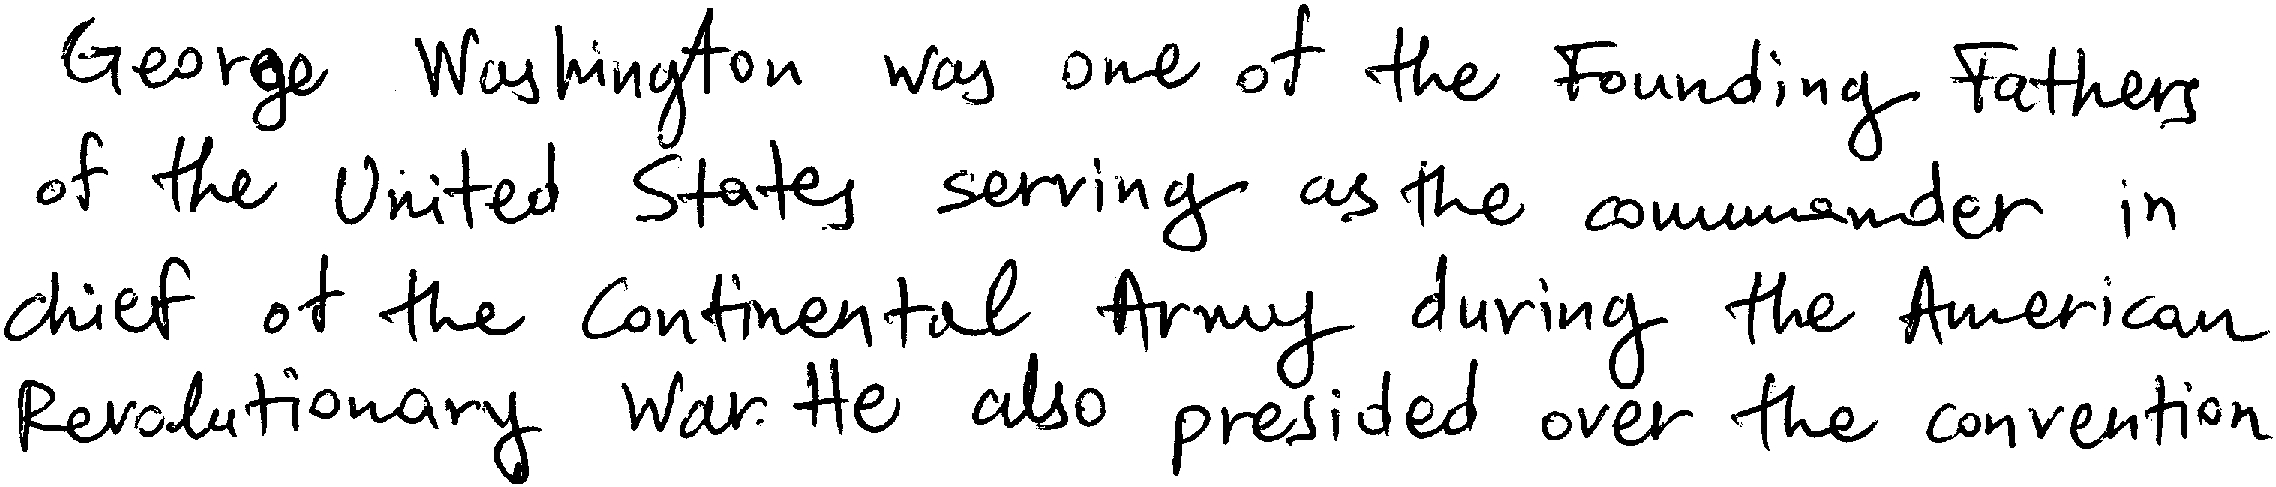 George Washington was one of the Founding Fathers
of the United States serving as the commander in
chief of the Continental Army during the American
Revolutionary War. He also presided over the convention